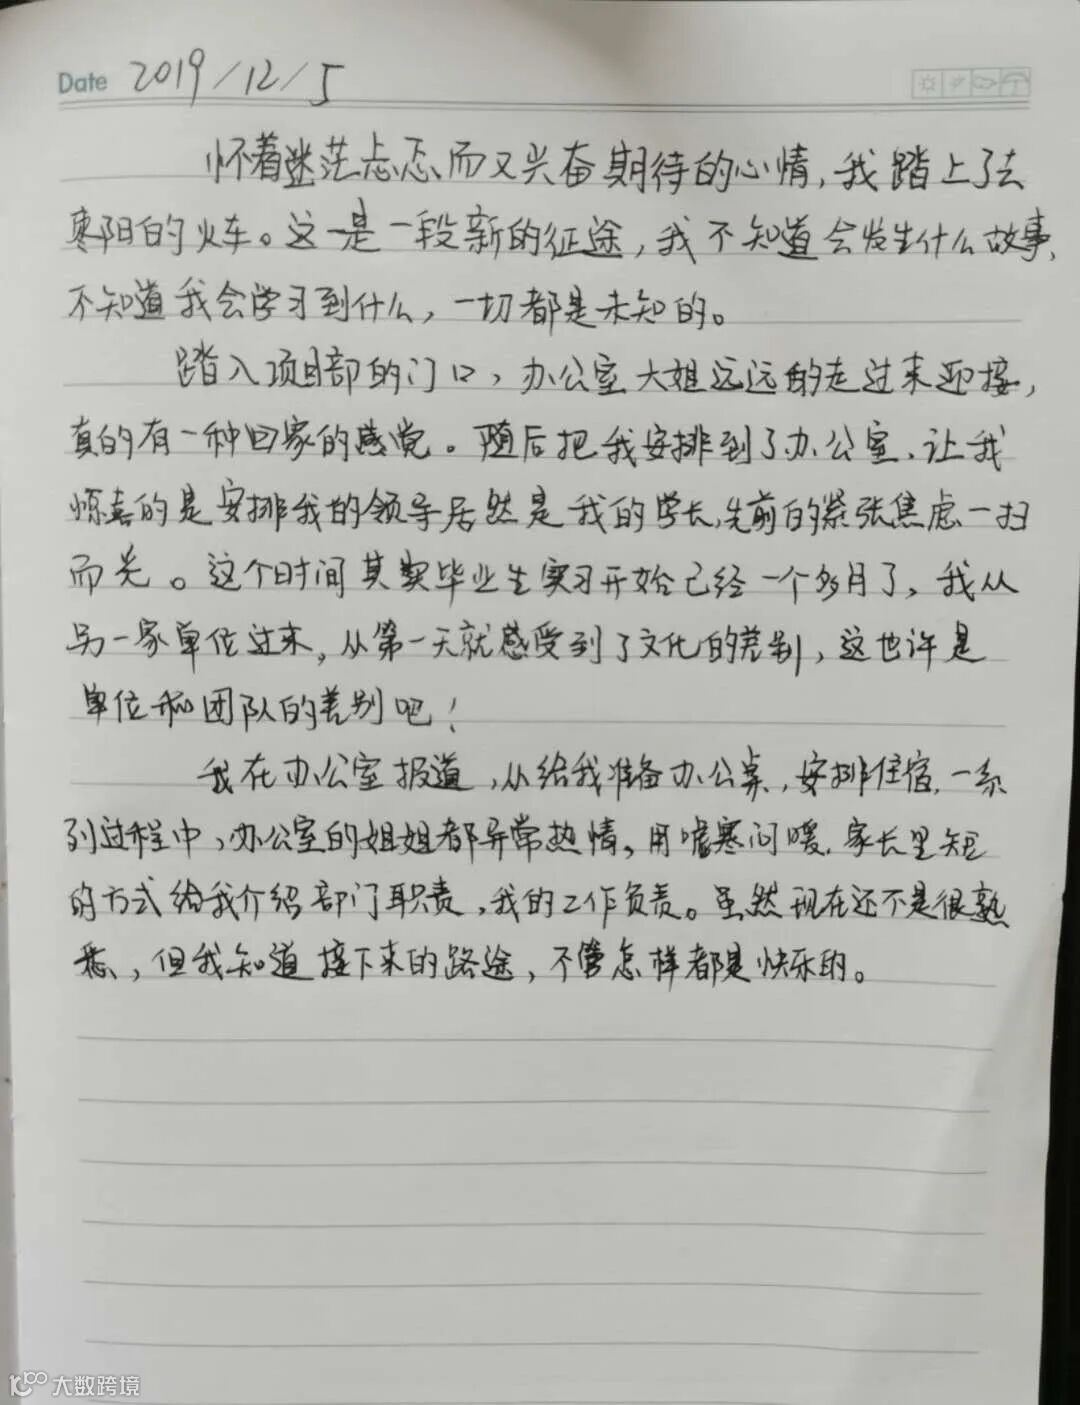 Date 2019/12/5
怀着迷茫忐忑而又兴奋期待的心情，我踏上了去
枣阳的火车。这一是一段新的征途，我不知道会发生什么故事，
不知道我会学习到什么，一切都是未知的。
踏入项目部的门口，办公室大姐远远的走过来迎接，
真的有一种回家的感觉。随后把我安排到了办公室，让我
惊喜的是安排我的领导居然是我的学长，先前的紧张焦虑一扫
而光。这个时间其实毕业生实习开始已经一个多月了，我从
另一家单位过来，从第一天就感受到了文化的差别，这也许是
单位和团队的差别吧！
我在办公室报道，从给我准备办公桌，安排住宿，一系
列过程中，办公室的姐姐都异常热情，用嘘寒问暖，家长里短
的方式给我介绍部门职责，我的工作负责。虽然现在还不是很熟
悉，但我知道接下来的路途，不管怎样都是快乐的。
大数跨境